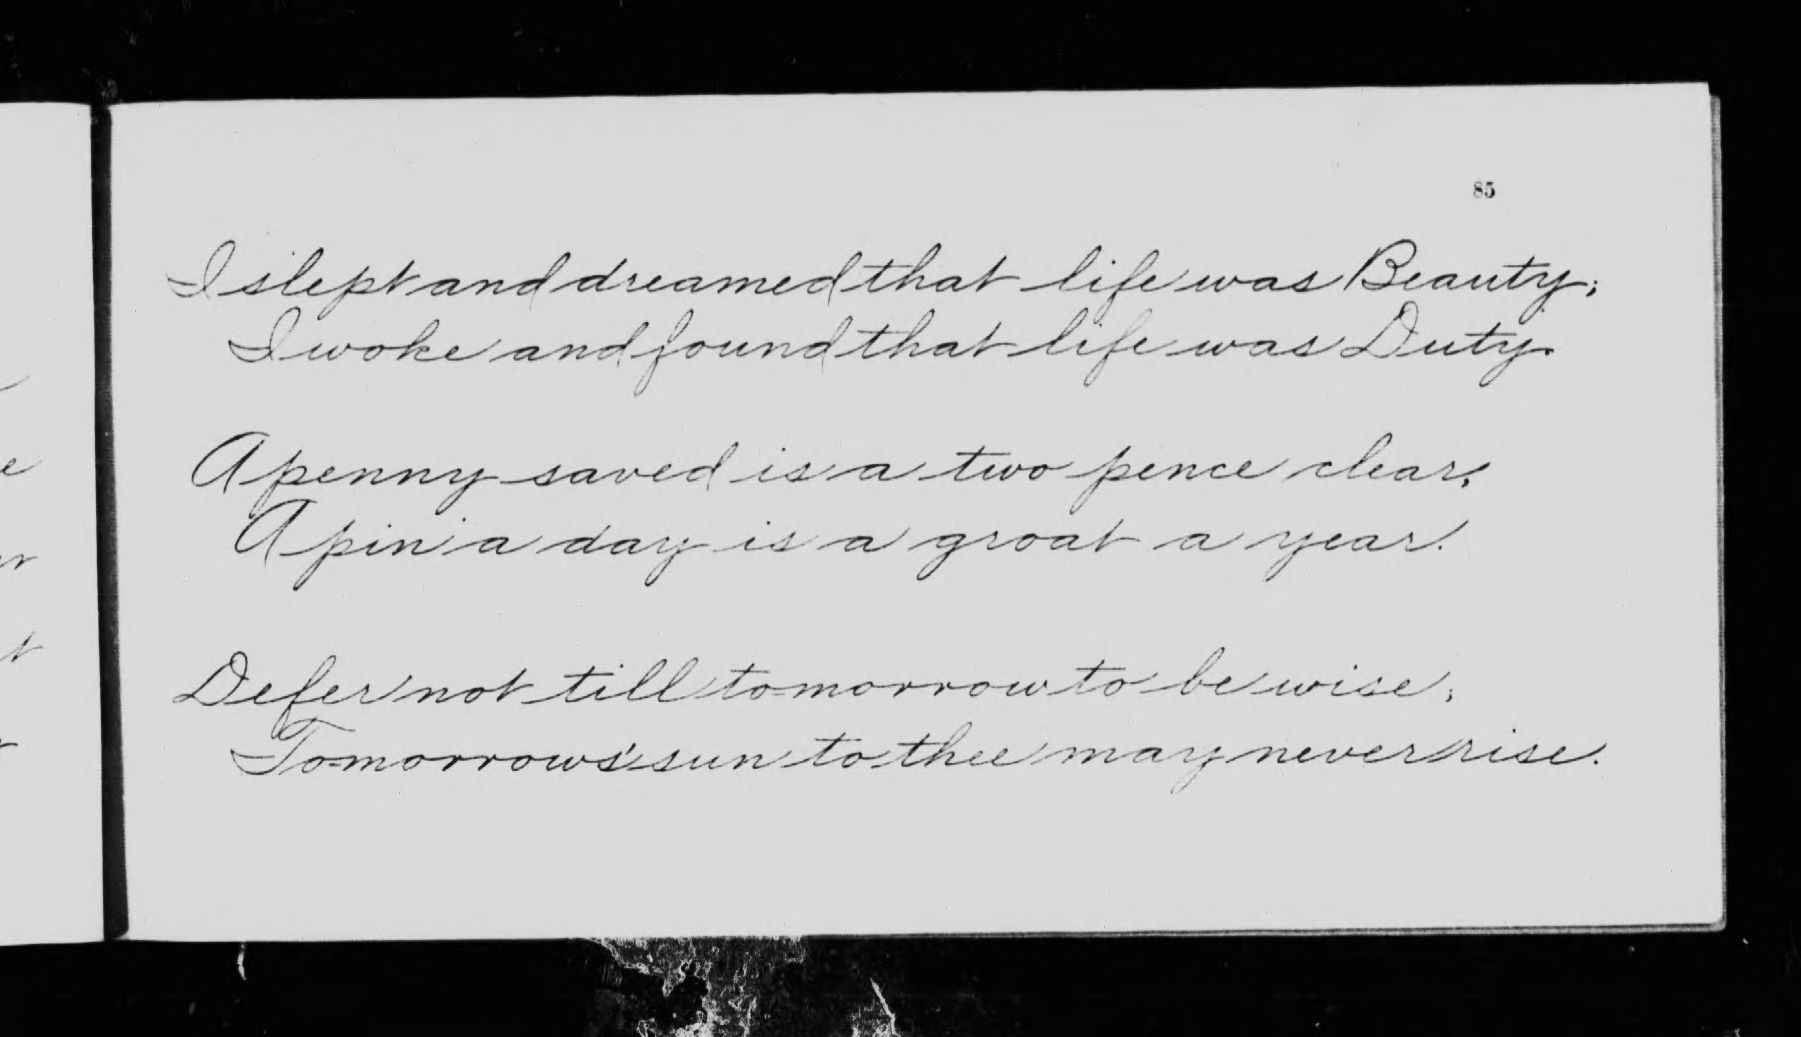 85
I slept and dreamed that life was Beauty;
I woke and found that life was Duty.
A penny saved is a two pence clear,
A pin a day is a groat a year.
Defer not till to-morrow to be wise,
To-morrow's sun to thee may never rise.